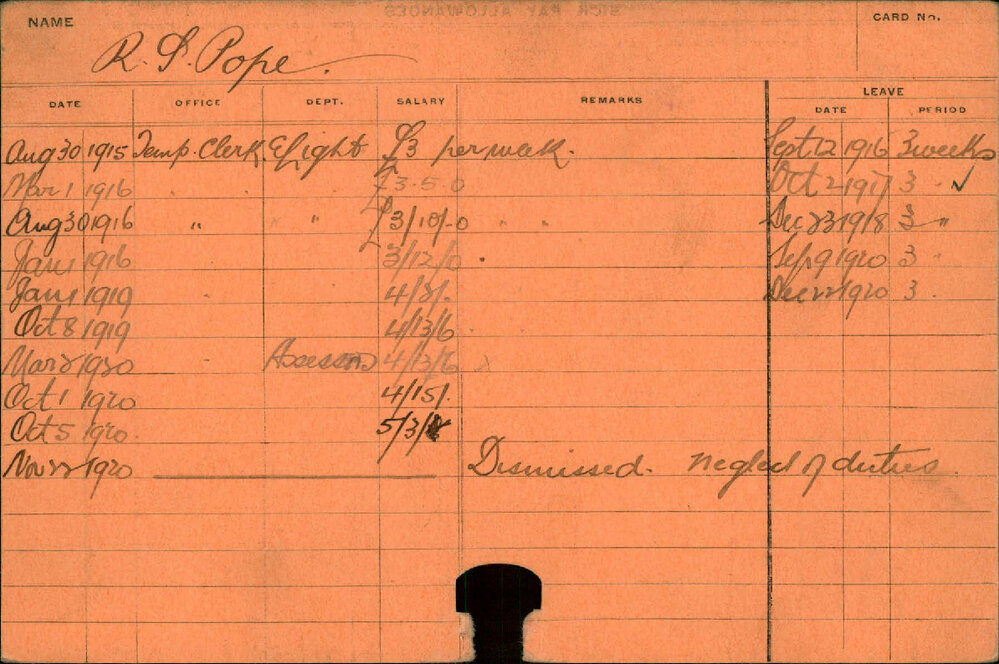 NAME
CARD No.
R. S. Pope.
LEAVE
DATE OFFICE DEPT. SALARY REMARKS DATE PERIOD
Aug 30 1915 Temp. Clerk E light £3 per week. Sept 12 1916 3 weeks
Mar 1 1916 " " £3-5-0 Oct 2 1917 3 " ✓
Aug 30 1916 " " £3/10/-0 " " Dec 23 1918 3 "
Jan 1 1916 3/12/0 Sep 9 1920 3 "
Jan 1 1919 4/3/. Dec 22 1920 3 "
Oct 8 1919 4/13/6
Mar 2 1920 Assessors 4/13/6
Oct 1 1920 4/15/.
Oct 5 1920. 5/3/
Nov 22 1920 Dismissed. Neglect of duties.